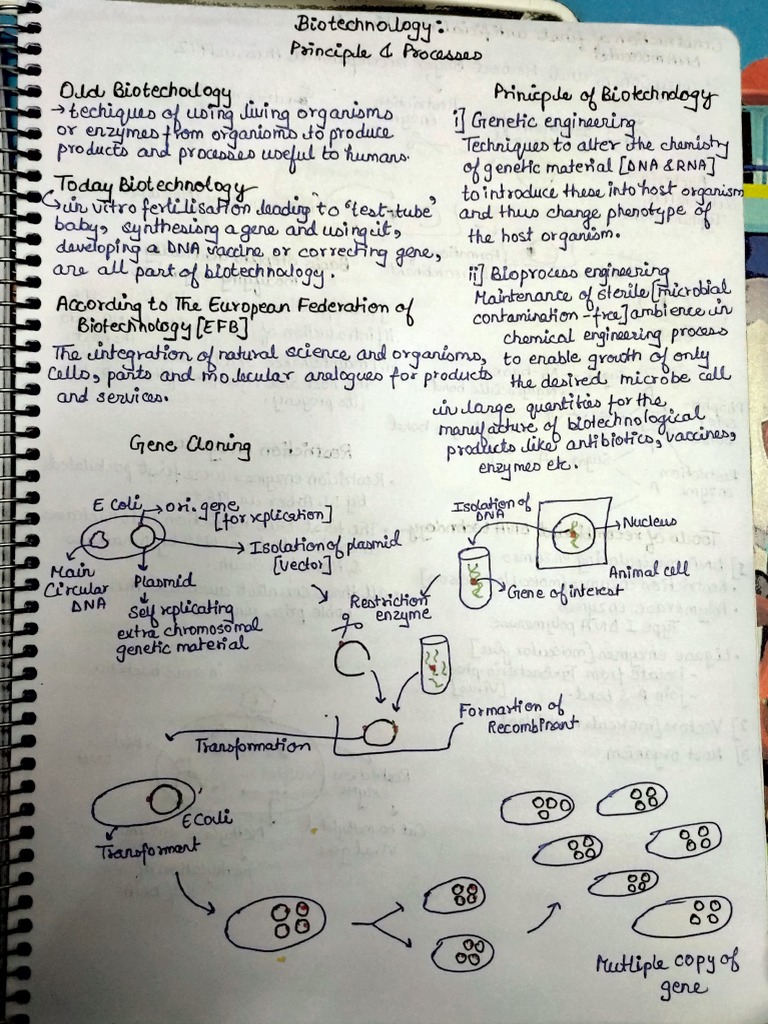 Biotechnology:
Principle & Processes
Old Biotechology
→ techiques of using living organisms
or enzymes from organisms to produce
products and processes useful to humans.
Today Biotechnology
in vitro fertilisation leading to "test-tube"
baby, synthesisng a gene and using it,
developing a DNA vaccine or correcting gene,
are all part of biotechnology.
According to The European Federation of
Biotechnology [EFB]
The integration of natural science and organisms,
cells, parts and molecular analogues for products
and services.
Prinicple of Biotechnology
i] Genetic engineering
Techniques to alter the chemistry
of genetic material [DNA & RNA]
to introduce these into host organism
and thus change phenotype of
the host organism.
ii] Bioprocess engineering
Maintenance of sterile [microbial
contamination-free] ambience in
chemical engineering process
to enable growth of only
the desired microbe cell
in large quantities for the
manufacture of biotechnological
products like antibiotics, vaccines,
enzymes etc.
Gene Cloning
E Coli
→ ori.gene
[for replication]
Isolation of plasmid
[vector]
Main
Circular
DNA
Plasmid
Self replicating
extra chromosomal
genetic material
Isolation of
DNA
Nucleus
Animal cell
Gene of interest
Restriction
enzyme
Formartion of
Recombinant
Transformation
E Coli
Transformant
Mutliple copy of
gene